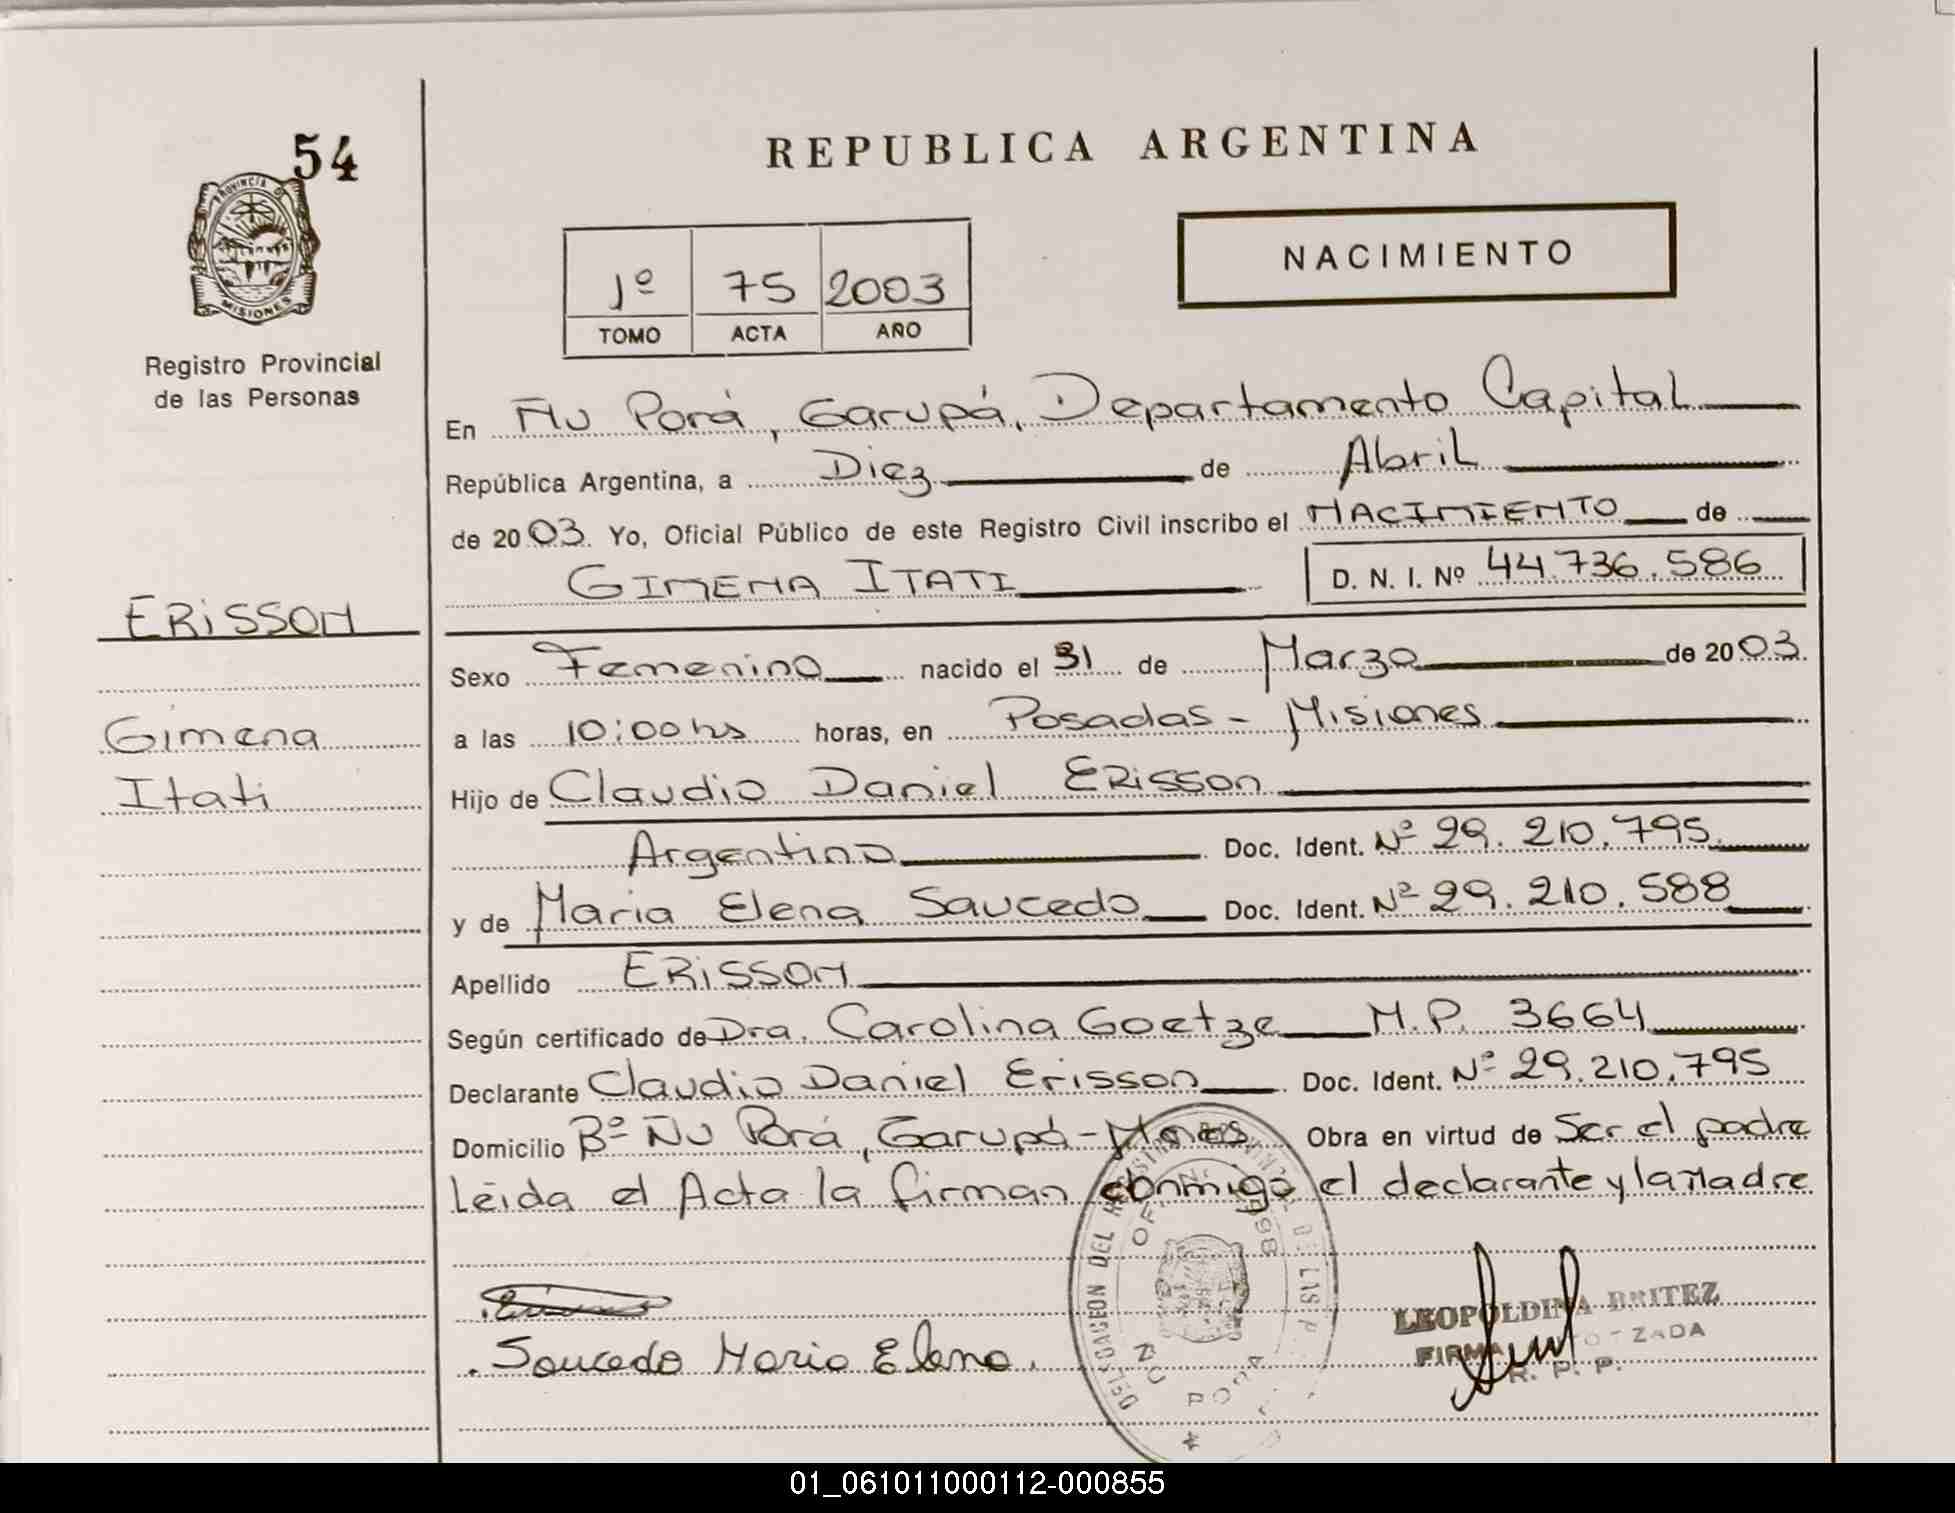 54
REPUBLICA ARGENTINA
PROVINCIA DE
MISIONES
Registro Provincial
de las Personas
1º 75 2003
TOMO ACTA AÑO
NACIMIENTO
En Ñu Porá, Garupá, Departamento Capital
República Argentina, a Diez de Abril
de 2003. Yo, Oficial Público de este Registro Civil inscribo el NACIMIENTO de
GIMENA ITATI D. N. I. Nº 44.736.586
ERISSON
Sexo Femenino nacido el 31 de Marzo de 2003.
Gimena
a las 10:00 hs horas, en Posadas - Misiones
Itati
Hijo de Claudio Daniel ERISSON
Argentino Doc. Ident. Nº 29.210.795
y de Maria Elena Saucedo Doc. Ident. Nº 29.210.588
Apellido ERISSON
Según certificado de Dra. Carolina Goetze M.P. 3664
Declarante Claudio Daniel Erisson Doc. Ident. Nº 29.210.795
Domicilio Bº Ñu Porá, Garupá - Mnes Obra en virtud de Ser el padre
Leida el Acta la firman conmigo el declarante y la Madre
Saucedo Maria Elena.
LEOPOLDINA BRITEZ
FIRMA AUTORIZADA
R. P. P.
01_061011000112-000855